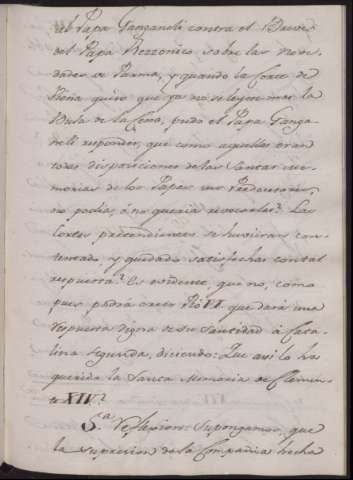 del Papa Ganganeli contra el Breve
del Papa Rezzonico sobre las nove-
dades de Parma, y quando la Corte de
Viena quiso que ya no se leyese mas la
Bula de la Cena, pudo el Papa Ganga-
neli responder, que como aquellas eran
todas disposiciones de las Santas me-
morias de los Papas sus Predecesores,
no podia, ó no queria revocarlas? Las
Cortes pretendientes se huvieran con-
tentado, y quedado satisfechas con tal
respuesta? Es evidente, que no, como
pues podrá creer Pio VI. que dará una
respuesta digna de su Santidad á Cata-
lina segunda, diciendo: Que asi lo ha
querido la Santa Memoria de Clemen-
te XIV?
5.a Reflexion: Supongamos, que
la supresion de la Compañia hecha